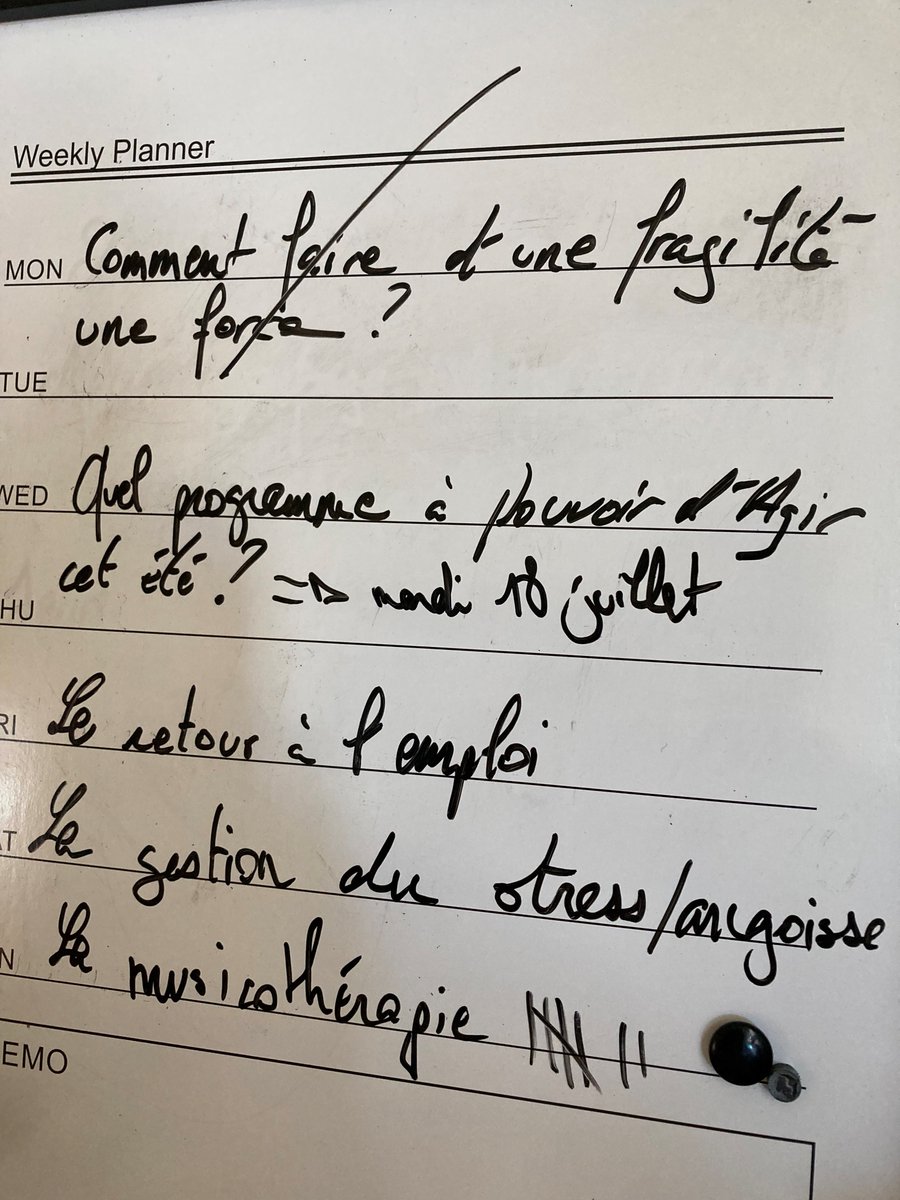 Weekly Planner
MON Comment faire d'une fragilité
une force ?
TUE
WED Quel programme à pouvoir d'Agir
cet été ? => mardi 18 juillet
HU
RI Le retour à l'emploi
AT La gestion du stress/angoisse
N La musicothérapie
EMO